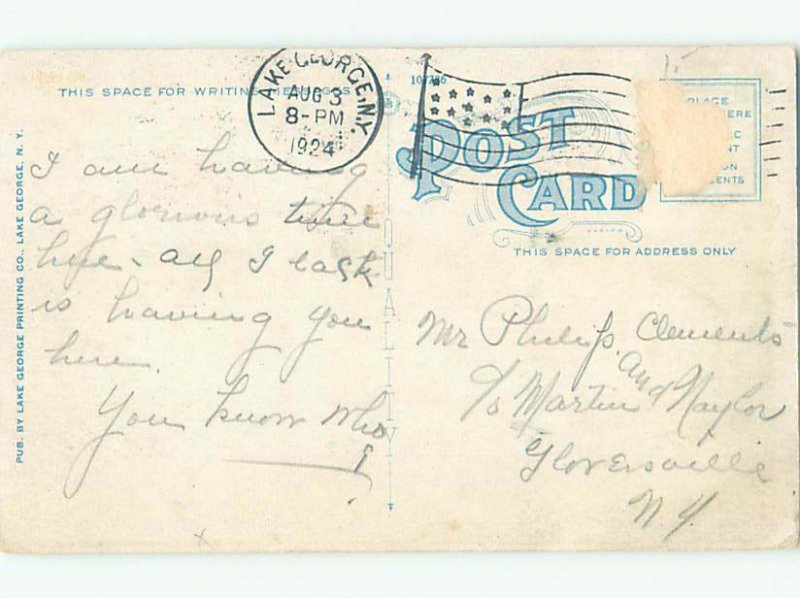 THIS SPACE FOR WRITING MESSAGES
LAKE GEORGE, N.Y.
AUG 3
8-PM
1924
I am having
a glorious time
here - all I lack
is having you
here.
You know who
PUB. BY LAKE GEORGE PRINTING CO., LAKE GEORGE, N. Y.
QUALITY
POST
CARD
PLACE
HERE
THIS SPACE FOR ADDRESS ONLY
Mr Philip Clements
℅ Martin and Naylor
Gloversville
N. Y.